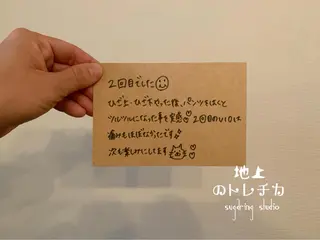 2回目でした
ひざ上・ひざ下やった後、パンツをはくと
ツルツルになった事を実感♡2回目のVIOは
痛みもほぼなかったです
次も楽しみにしてます
地上
のトレチカ
sugaring studio